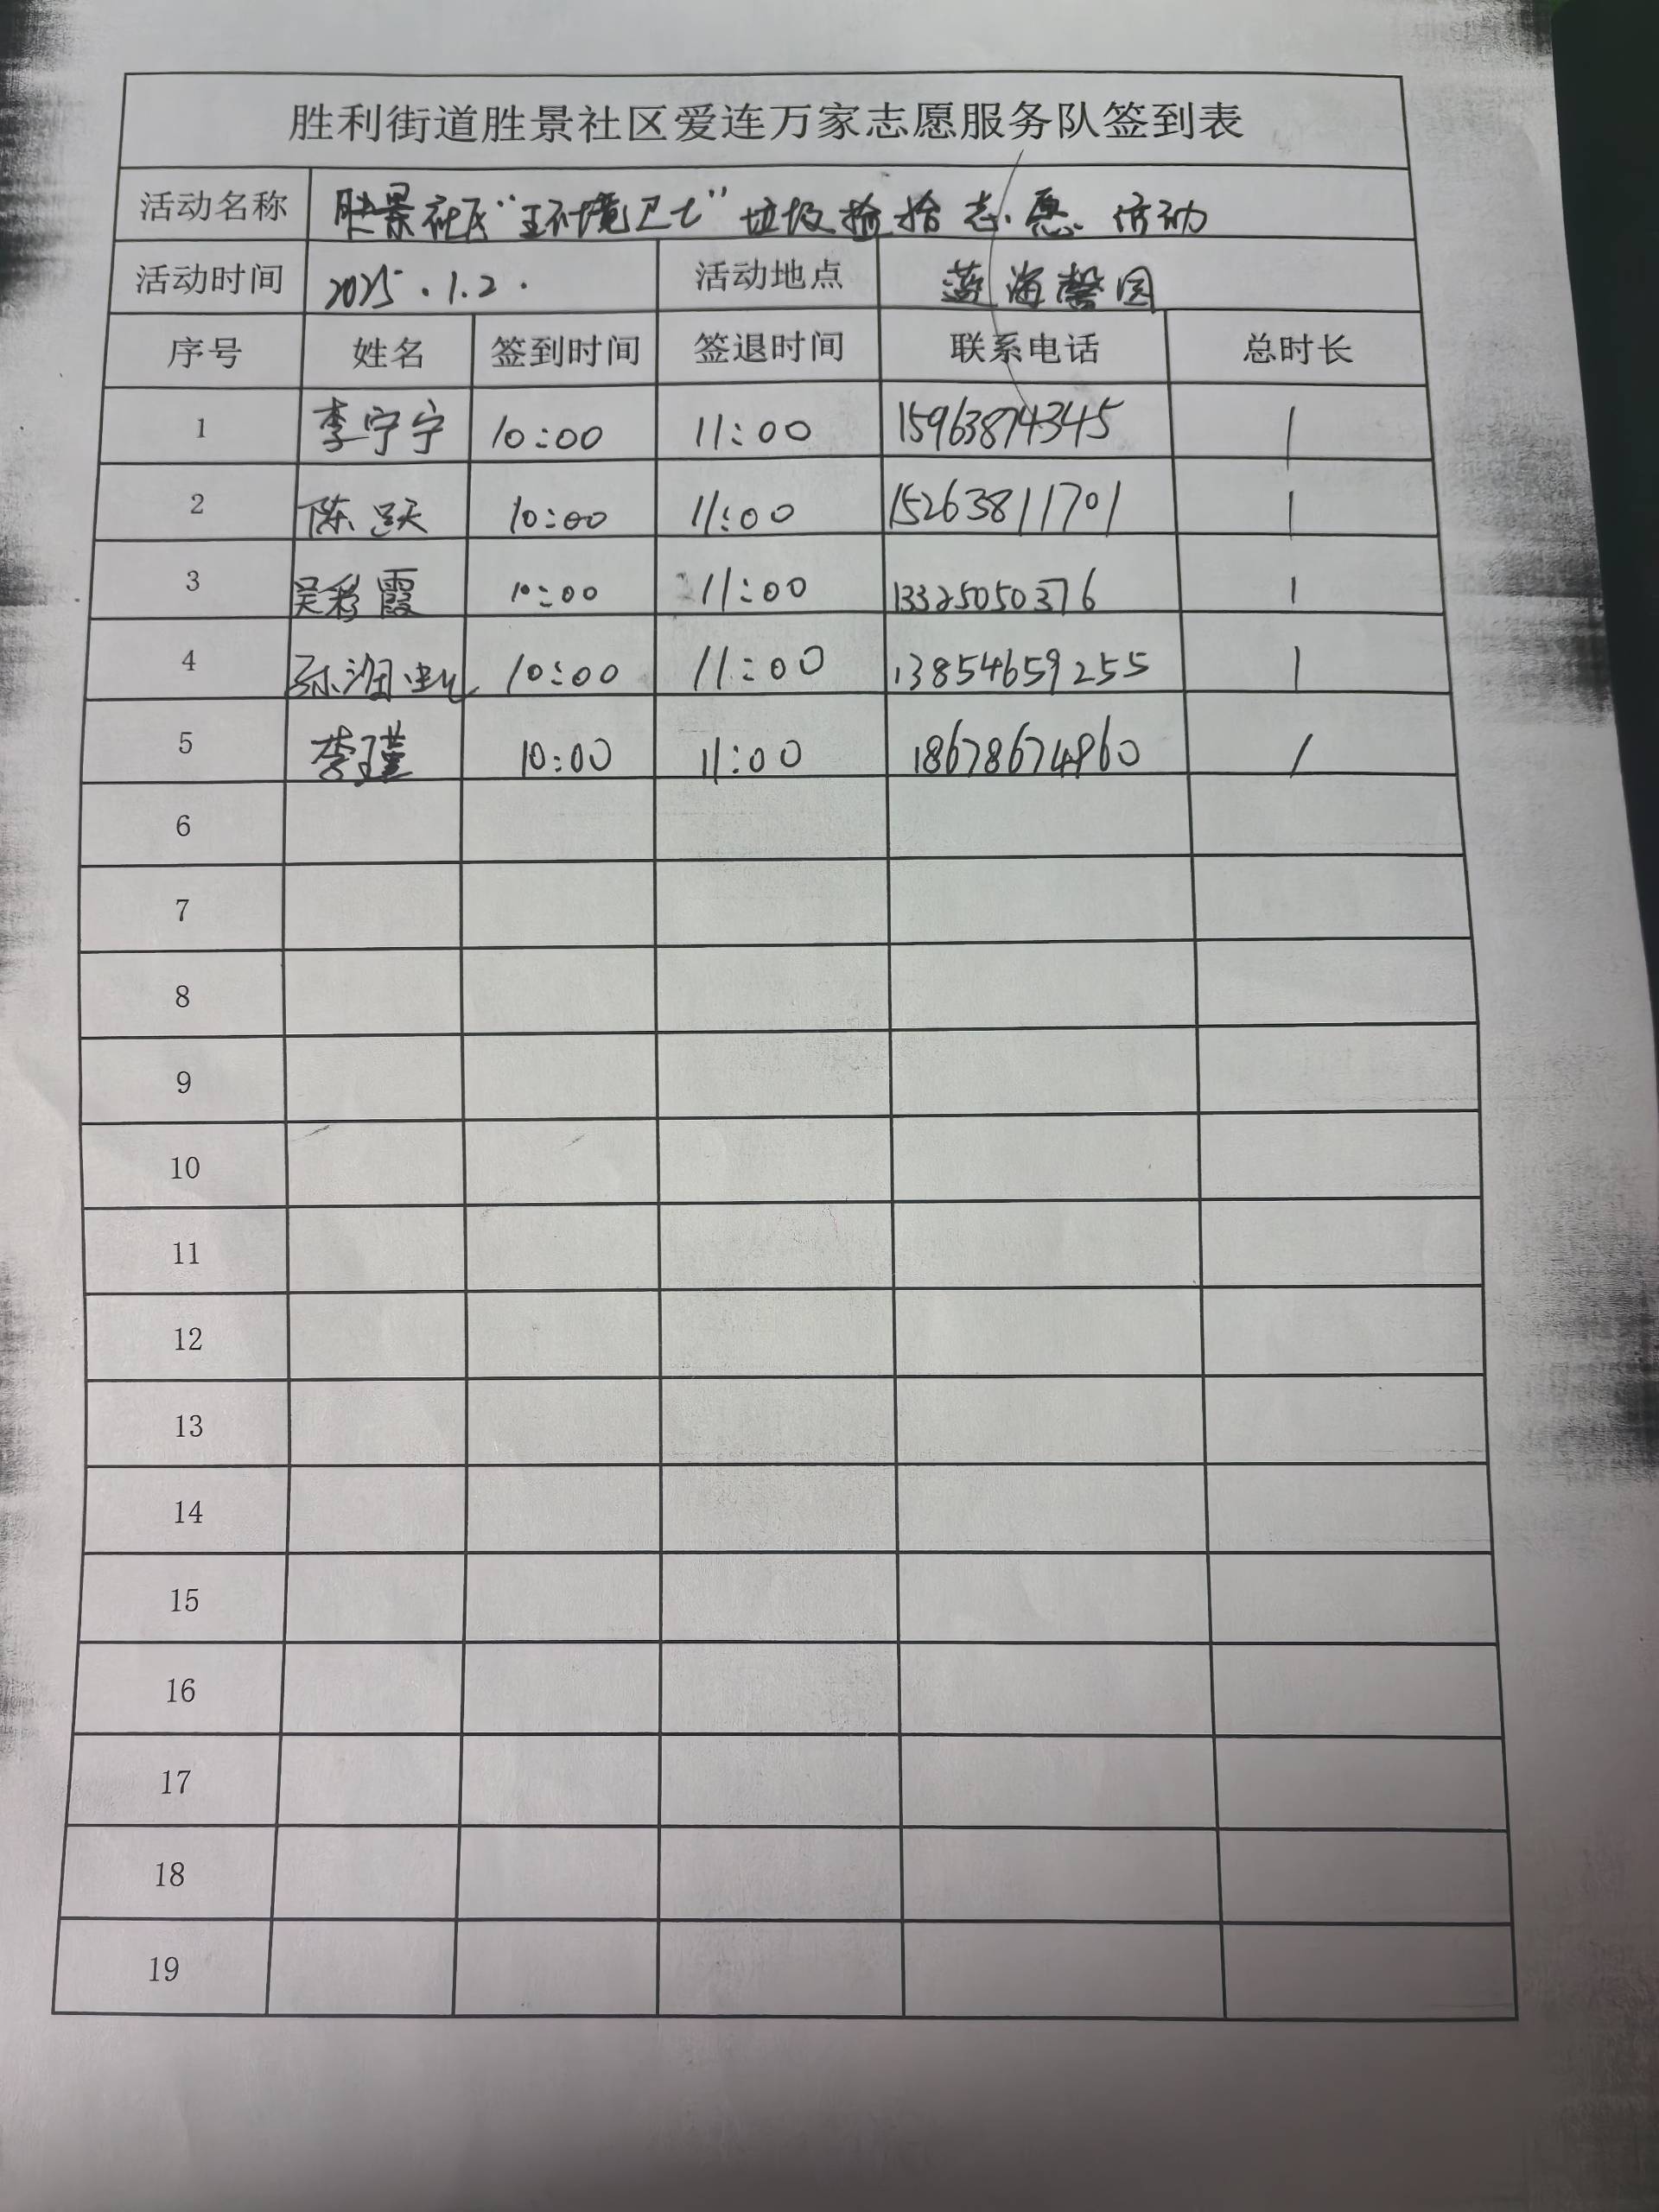 胜利街道胜景社区爱连万家志愿服务队签到表
活动名称 胜景社区“环境卫士”垃圾捡拾志愿活动
活动时间 2025.1.2. 活动地点 蓝海馨园
序号 姓名 签到时间 签退时间 联系电话 总时长
1 李宁宁 10:00 11:00 15963874345 1
2 陈跃 10:00 11:00 15263811701 1
3 吴彩霞 10:00 11:00 13325050376 1
4 10:00 11:00 13854659255 1
5 李瑾 10:00 11:00 18678674960 1
6
7
8
9
10
11
12
13
14
15
16
17
18
19